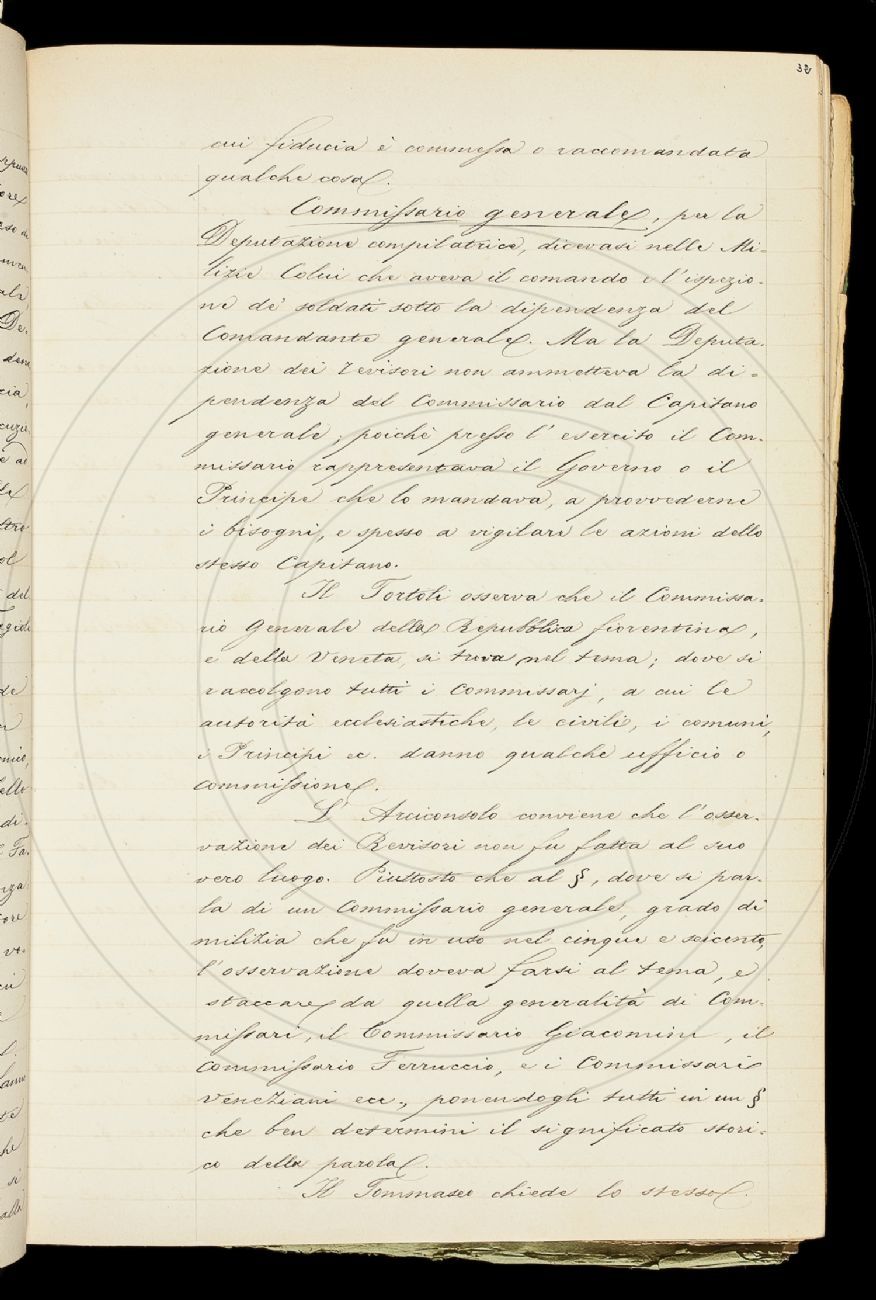 32
cui fiducia è commessa o raccomandata
qualche cosa.
Commissario generale, per la
Deputazione compilatrice, dicevasi nelle Mi-
lizie Colui che aveva il comando e l'ispezio-
ne de' soldati sotto la dipendenza del
Comandante generale. Ma la Deputa-
zione dei revisori non ammetteva la di-
pendenza del Commissario dal Capitano
generale; poichè presso l'esercito il Com-
missario rappresentava il Governo o il
Principe che lo mandava, a provvederne
i bisogni, e spesso a vigilare le azioni dello
stesso Capitano.
Il Tortoli osserva che il Commissa-
rio Generale della Repubblica fiorentina,
e della Veneta, si trova nel tema; dove si
raccolgono tutti i commissarj, a cui le
autorità ecclesiastiche, le civili, i comuni,
i Principi ec. danno qualche ufficio o
commissione.
L'Arciconsolo conviene che l'osser-
vazione dei Revisori non fu fatta al suo
vero luogo. Piuttosto che al §, dove si par-
la di un Commissario generale, grado di
milizia che fu in uso nel cinque e seicento,
l'osservazione doveva farsi al tema, e
staccare da quella generalità di Com-
missari, il Commissario Giacomini, il
Commissario Ferruccio, e i Commissari
Veneziani ecc., ponendogli tutti in un §
che ben determini il significato stori-
co della parola.
Il Tommaseo chiede lo stesso.